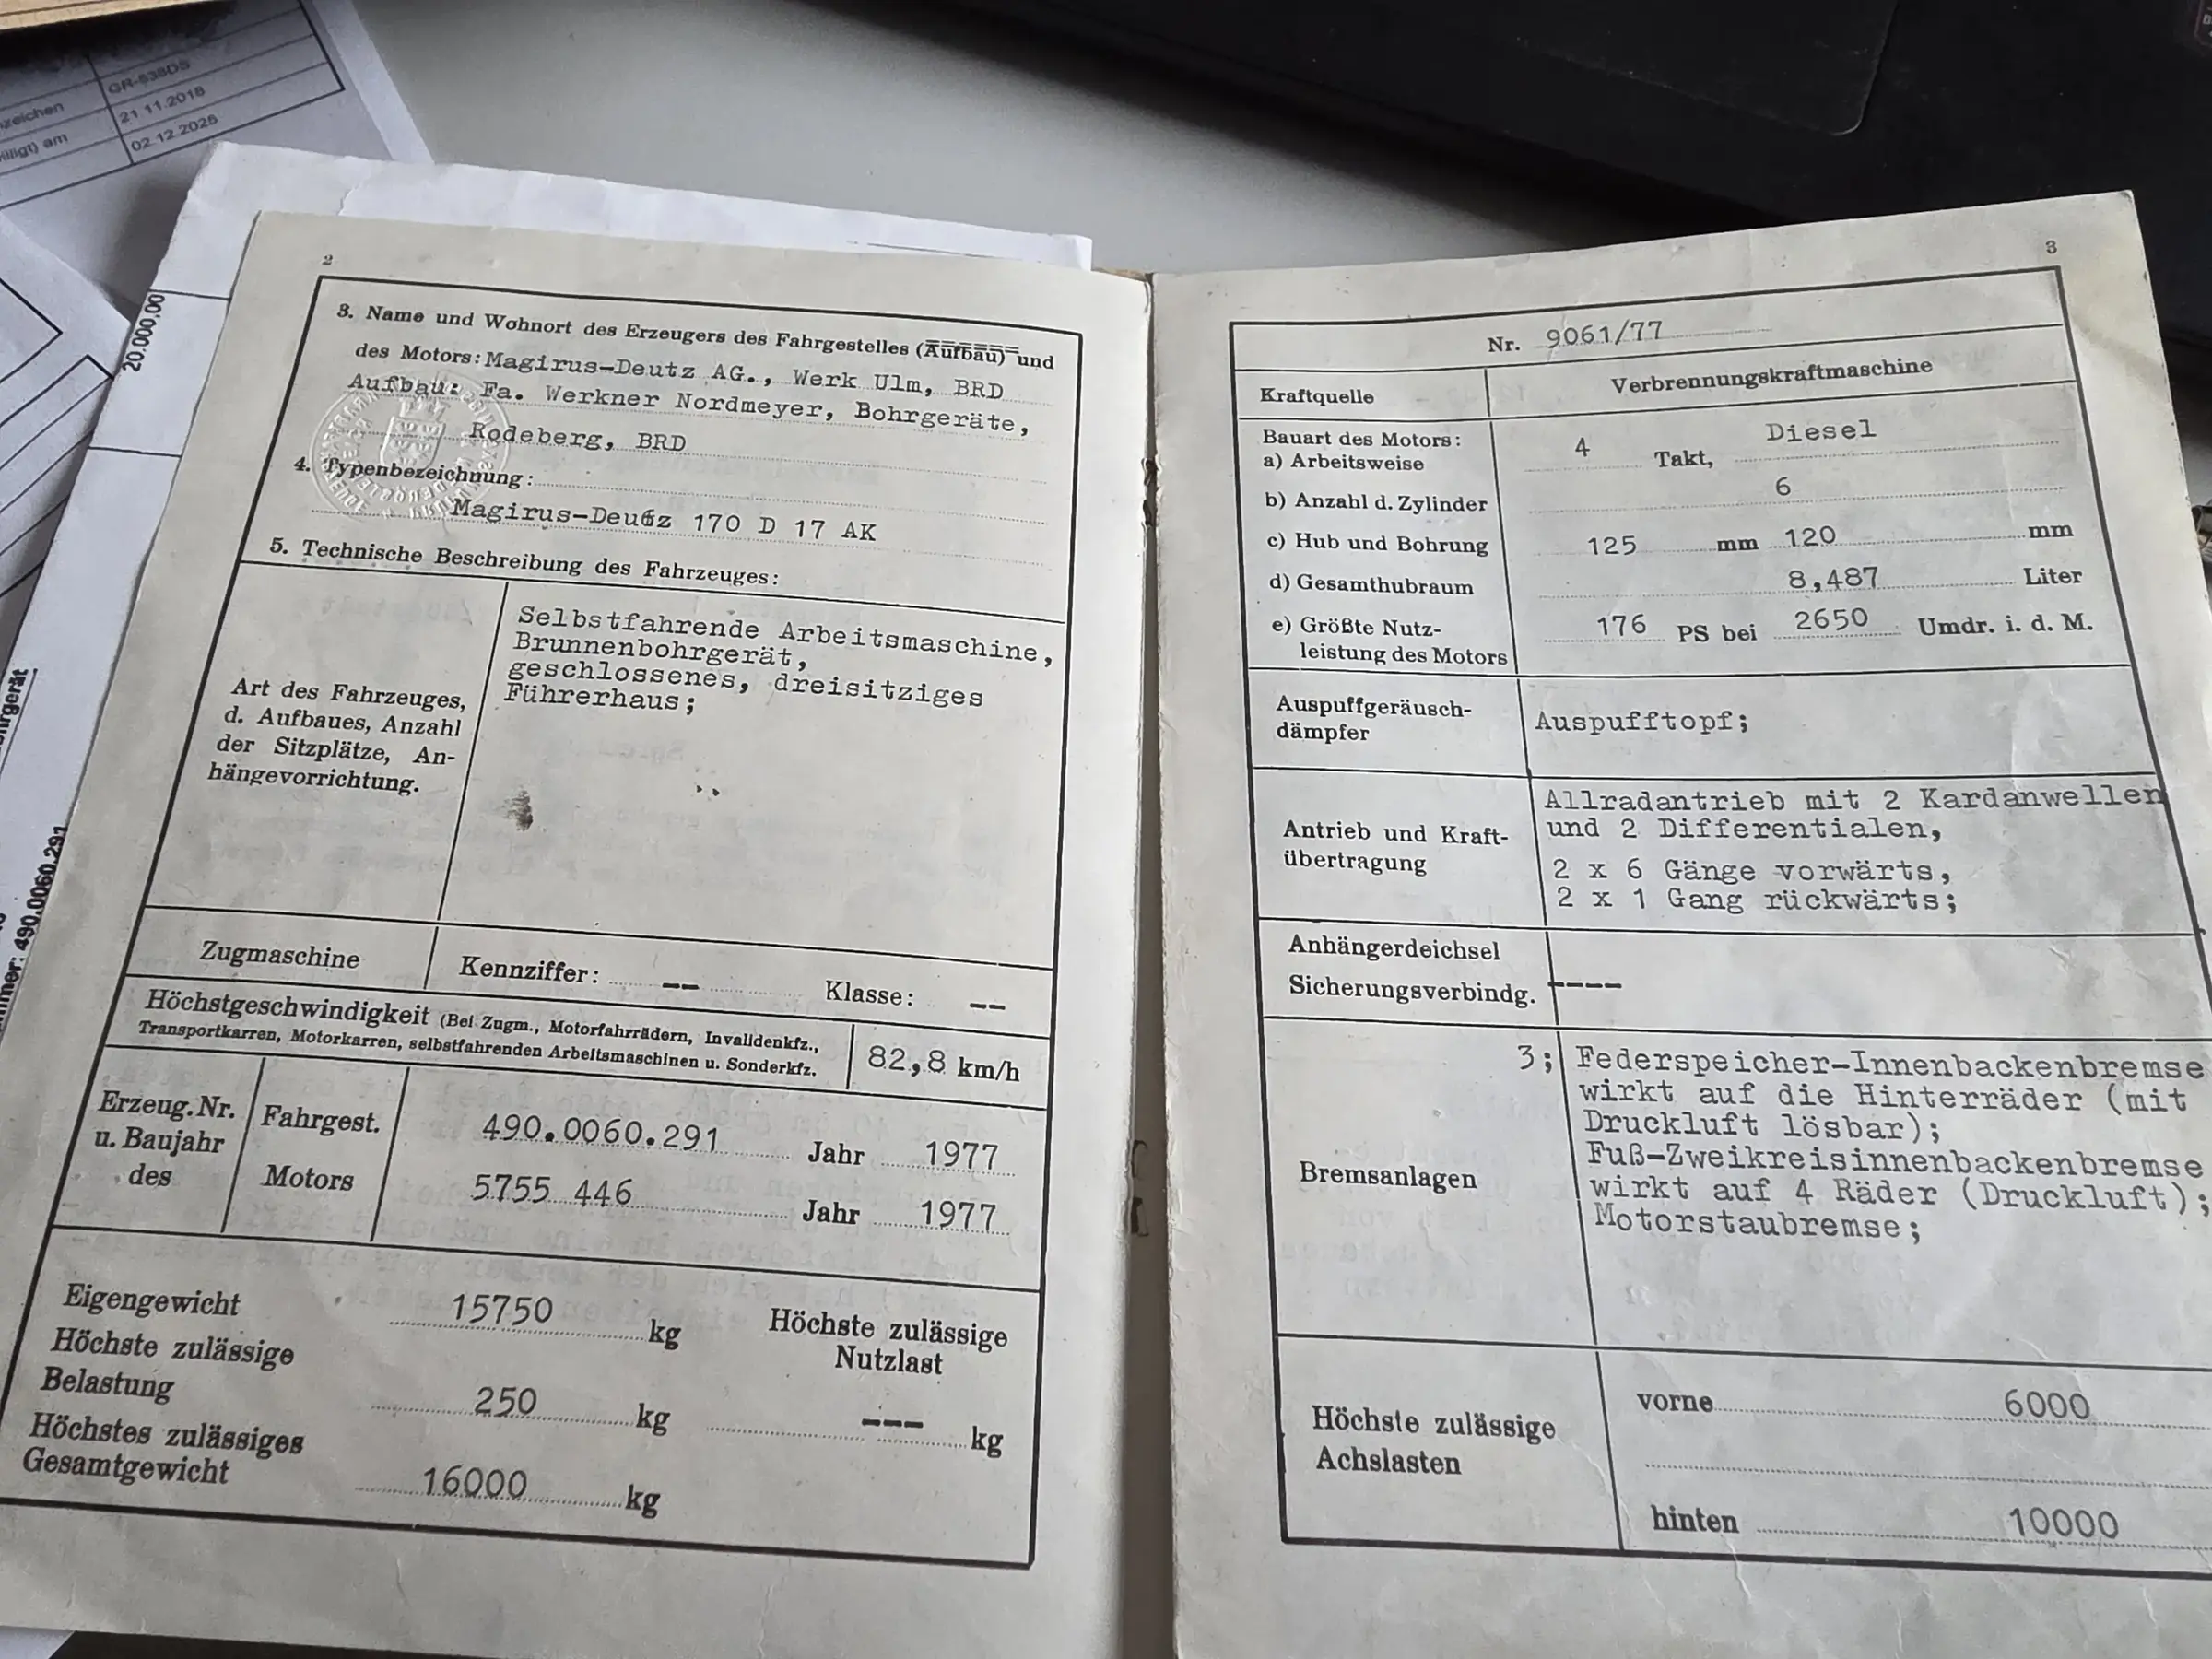 GR-838DS
21 11.2018
02.12.2025
20.000,00
490.0060.291
2
3. Name und Wohnort des Erzeugers des Fahrgestelles (Aufbau) und
des Motors: Magirus-Deutz AG., Werk Ulm, BRD
Aufbau: Fa. Werkner Nordmeyer, Bohrgeräte,
Rodeberg, BRD
4. Typenbezeichnung:
Magirus-Deutz 170 D 17 AK
5. Technische Beschreibung des Fahrzeuges:
Art des Fahrzeuges,
d. Aufbaues, Anzahl
der Sitzplätze, An-
hängevorrichtung.
Selbstfahrende Arbeitsmaschine,
Brunnenbohrgerät,
geschlossenes, dreisitziges
Führerhaus;
Zugmaschine Kennziffer: -- Klasse: --
Höchstgeschwindigkeit (Bei Zugm., Motorfahrrädern, Invalidenkfz.,
Transportkarren, Motorkarren, selbstfahrenden Arbeitsmaschinen u. Sonderkfz.
82,8 km/h
Erzeug.Nr.
u. Baujahr
des
Fahrgest. 490.0060.291 Jahr 1977
Motors 5755 446 Jahr 1977
Eigengewicht 15750 kg
Höchste zulässige
Belastung 250 kg
Höchste zulässige
Nutzlast
--- kg
Höchstes zulässiges
Gesamtgewicht 16000 kg
3
Nr. 9061/77
Kraftquelle Verbrennungskraftmaschine
Bauart des Motors:
a) Arbeitsweise 4 Takt, Diesel
b) Anzahl d. Zylinder 6
c) Hub und Bohrung 125 mm 120 mm
d) Gesamthubraum 8,487 Liter
e) Größte Nutz-
leistung des Motors 176 PS bei 2650 Umdr. i. d. M.
Auspuffgeräusch-
dämpfer
Auspufftopf;
Antrieb und Kraft-
übertragung
Allradantrieb mit 2 Kardanwellen
und 2 Differentialen,
2 x 6 Gänge vorwärts,
2 x 1 Gang rückwärts;
Anhängerdeichsel
Sicherungsverbindg. ----
Bremsanlagen
3; Federspeicher-Innenbackenbremse
wirkt auf die Hinterräder (mit
Druckluft lösbar);
Fuß-Zweikreisinnenbackenbremse
wirkt auf 4 Räder (Druckluft);
Motorstaubremse;
Höchste zulässige
Achslasten
vorne 6000
hinten 10000